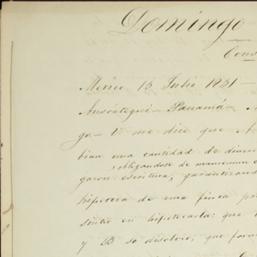 Domingo
Cons
Mexico 15 Julio 1881 —
Ansoátegui — Panamá —
go — U. me dice que
bian una cantidad de dinero
obligandose de mancomun
garon escritura, garantizando
hipoteca de una finca
en hipotecarla: que
y B se disolvió, que